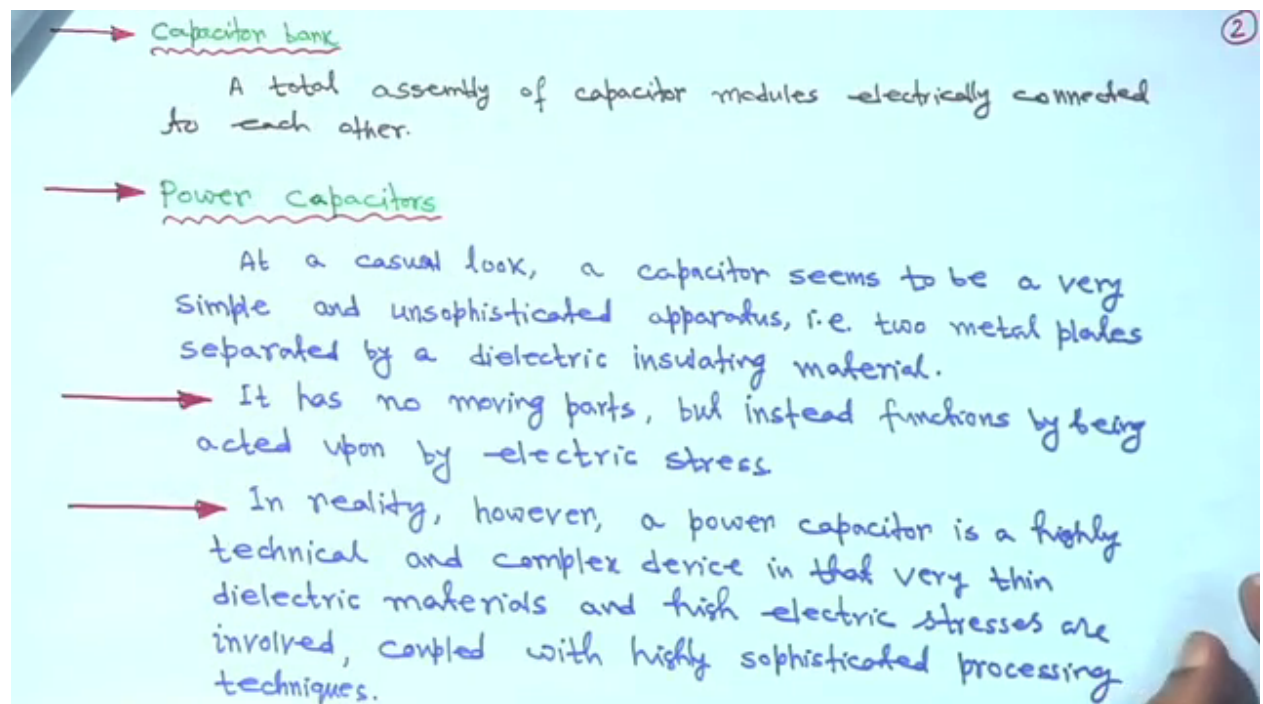 2
Capacitor bank
A total assembly of capacitor modules electrically connected
to each other.
Power Capacitors
At a casual look, a capacitor seems to be a very
simple and unsophisticated apparatus, i.e. two metal plates
separated by a dielectric insulating material.
It has no moving parts, but instead functions by being
acted upon by electric stress.
In reality, however, a power capacitor is a highly
technical and complex device in that very thin
dielectric materials and high electric stresses are
involved, coupled with highly sophisticated processing
techniques.